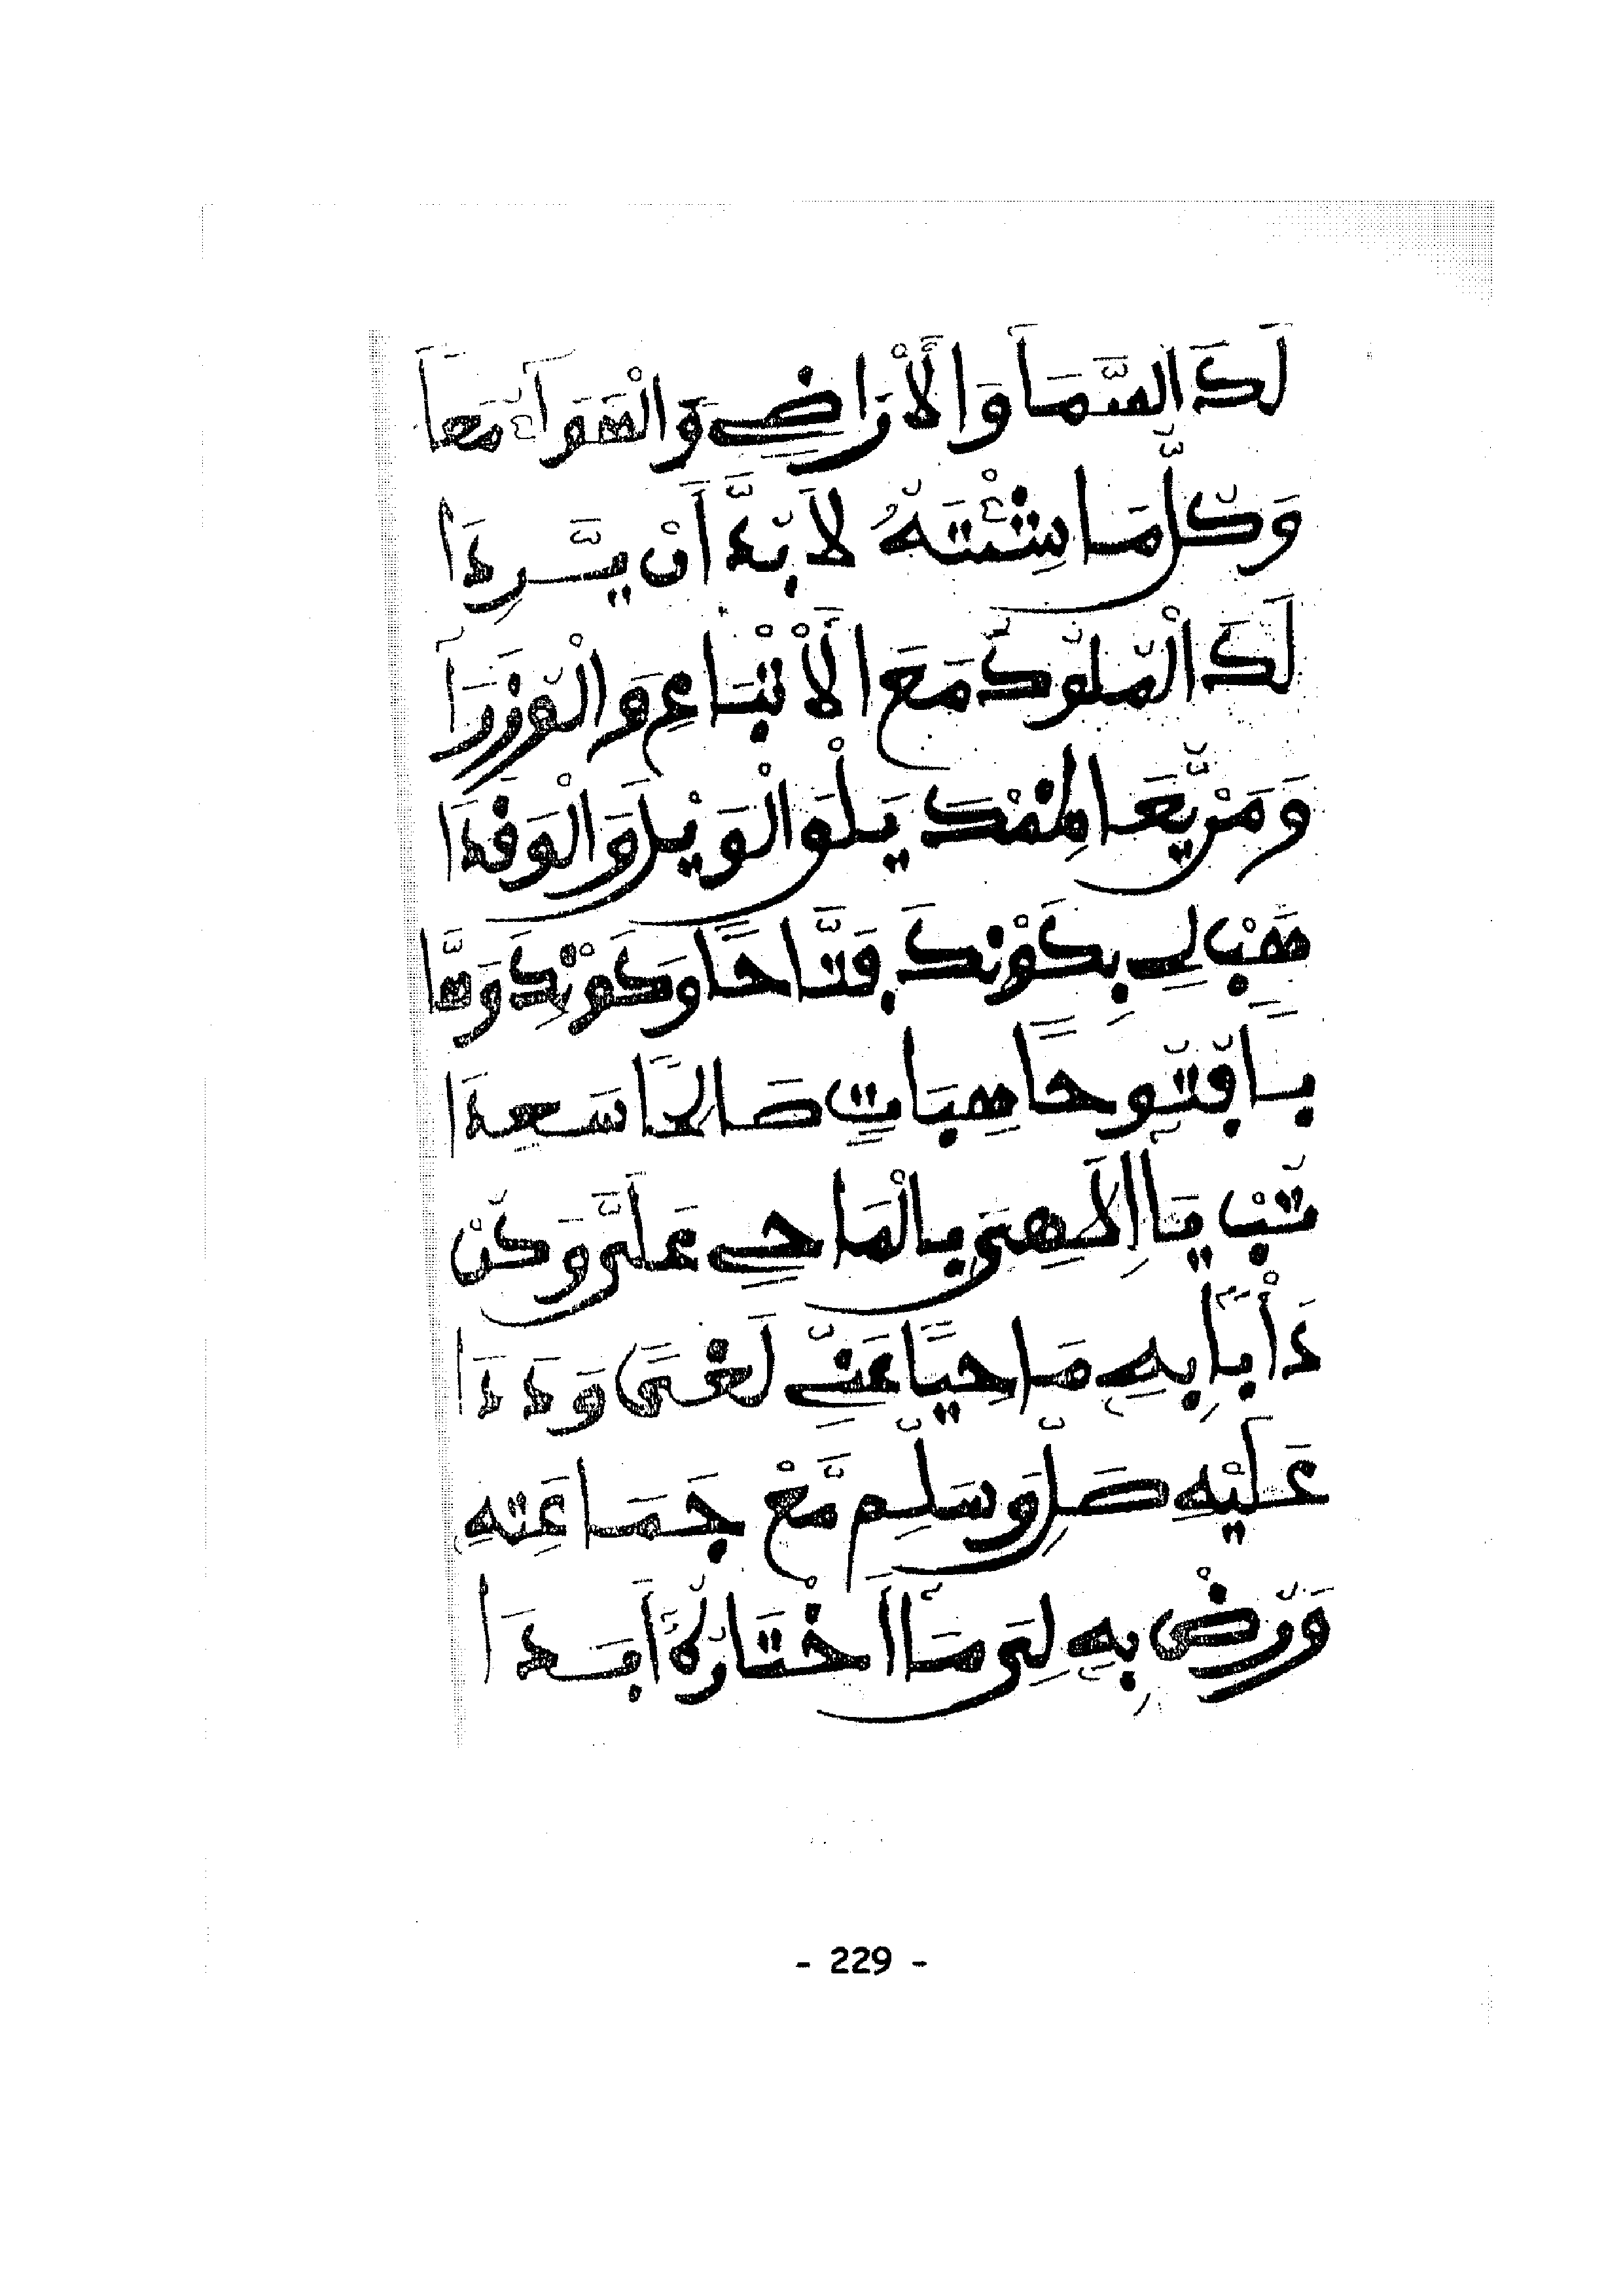 لَكَ السَّمَا وَالْأَرَاضِي وَالْهَوَاءُ مَعًا
وَكُلُّ مَا شِئْتَهُ لَا بُدَّ أَنْ يَّرِدَا
لَكَ الْمُلُوكُ مَعَ الْأَتْبَاعِ وَالْوُزَرَا
وَمَنْ يَّعَا لِمُلْكِكَ يَلْوَ الْوَيْلَ وَالْوَفَدَا
هَبْ لِي بِكَوْنِكَ فَتَّاحًا وَكَوْنِكَ وَهَّا
بًا فُتُوحًا هِبَاتٍ صَالِحًا سَعِدَا
تُبْ يَا إِلَهِي بِالْمَاحِي عَلَيَّ وَكُنْ
دَأْبًا بِهِ مَاحِيًا عَنِّي لَغًى وَدَدَا
عَلَيْهِ صَلِّ وَسَلِّمْ مَّعْ جَمَاعَتِهِ
وَرُضْ بِهِ لِي مَا أَخْتَارُهُ أَبَدَا
- 229 -